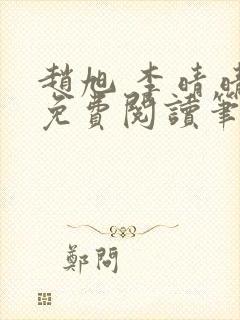 趙旭 李晴晴
免費閱讀筆
鄭問